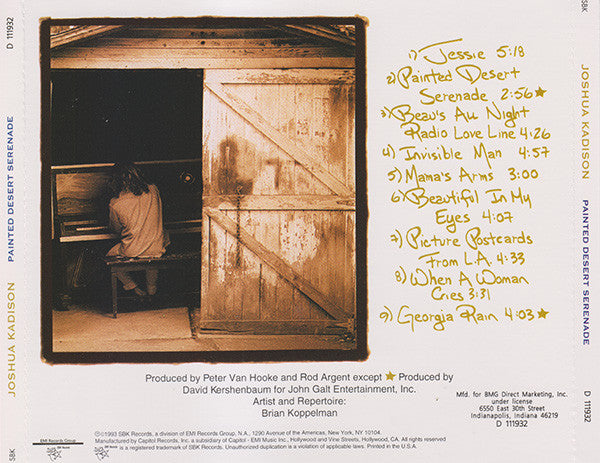 SBK
D 111932
PAINTED DESERT SERENADE
JOSHUA KADISON
SBK
1) Jessie 5:18
2) Painted Desert
Serenade 2:56★
3) Beau's All Night
Radio Love Line 4:26
4) Invisible Man 4:57
5) Mama's Arms 3:00
6) Beautiful In My
Eyes 4:07
7) Picture Postcards
From L.A. 4:33
8) When A Woman
Cries 3:31
9) Georgia Rain 4:03★
Produced by Peter Van Hooke and Rod Argent except ★ Produced by
David Kershenbaum for John Galt Entertainment, Inc.
Artist and Repertoire:
Brian Koppelman
Mfd. for BMG Direct Marketing, Inc.
under license
6550 East 30th Street
Indianapolis, Indiana 46219
D 111932
℗©1993 SBK Records, a division of EMI Records Group, N.A., 1290 Avenue of the Americas, New York, NY 10104.
Manufactured by Capitol Records, Inc. a subsidiary of Capitol - EMI Music Inc., Hollywood and Vine Streets, Hollywood, CA. All rights reserved
is a registered trademark of SBK Records. Unauthorized duplication is a violation of applicable laws. Printed in the U.S.A.
EMI Records Group
SBK
JOSHUA KADISON
PAINTED DESERT SERENADE
D 111932